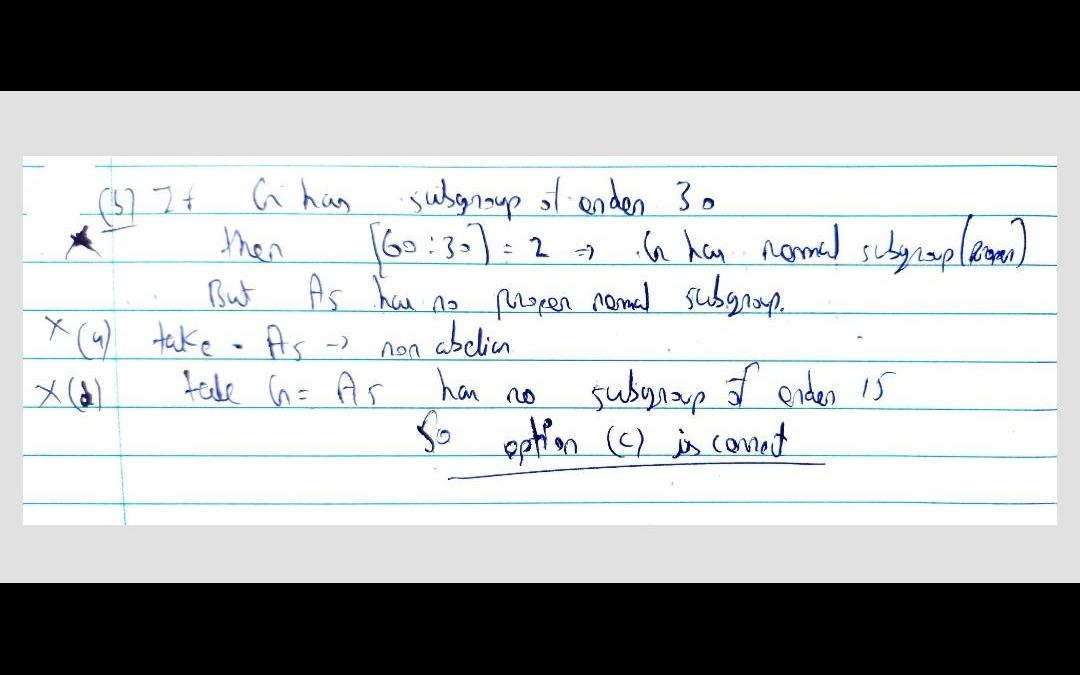 (b) If G has subgroup of order 30
then [60:30] = 2 ⇒ G has normal subgroup (proper)
But A5 has no proper normal subgroup.
× (a) take A5 → non abelian
× (d) take G = A5 has no subgroup of order 15
So option (c) is correct